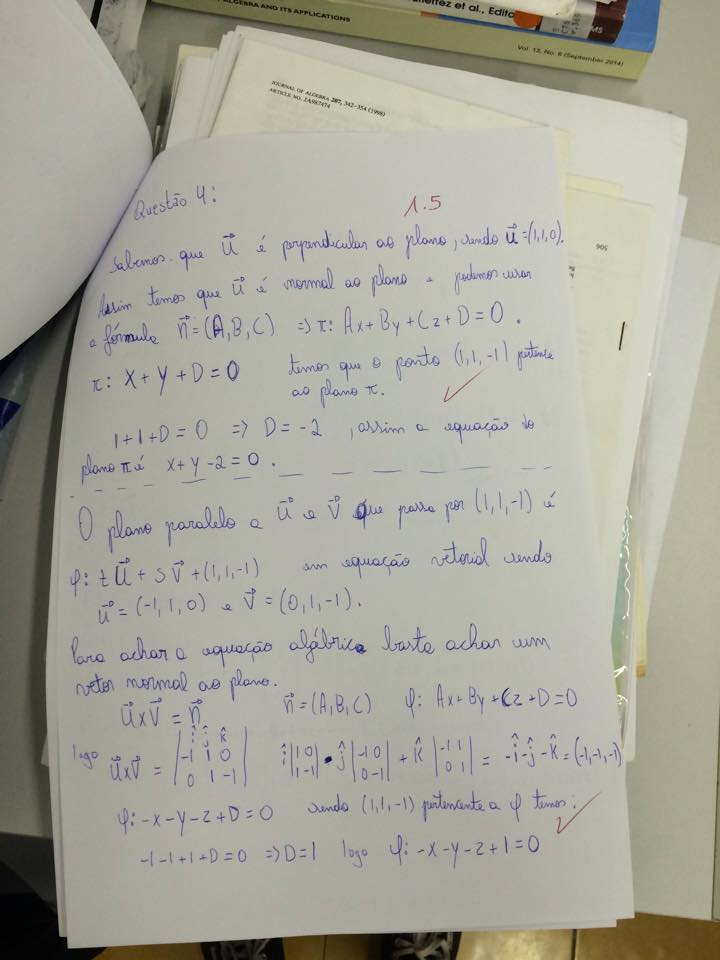 utierrez et al., Edito
ALGEBRA AND ITS APPLICATIONS
Vol. 13, No. 6 (September 2014)
JOURNAL OF ALGEBRA 207, 342-354 (1998)
ARTICLE NO. JA987474
905
Questão 4:
1.5
Sabemos que u⃗ é perpendicular ao plano, sendo u⃗=(1,1,0).
Assim temos que u⃗ é normal ao plano e podemos usar
a fórmula n⃗=(A,B,C) => π: Ax+By+Cz+D=0.
π: X+Y+D=0 temos que o ponto (1,1,-1) pertence
ao plano π.
1+1+D=0 => D=-2, assim a equação do
plano π é x+y-2=0.
O plano paralelo a u⃗ e v⃗ que passa por (1,1,-1) é
φ: t u⃗ + s v⃗ + (1,1,-1) em equação vetorial sendo
u⃗=(-1,1,0) e v⃗=(0,1,-1).
Para achar a equação algébrica basta achar um
vetor normal ao plano.
u⃗x v⃗ = n⃗ n⃗=(A,B,C) φ: Ax+By+Cz+D=0
logo u⃗x v⃗ = |î ĵ k̂; -1 1 0; 0 1 -1| î|1 0; 1 -1| - ĵ|-1 0; 0 -1| + k̂|-1 1; 0 1| = -î-ĵ-k̂=(-1,-1,-1)
φ: -x-y-z+D=0 sendo (1,1,-1) pertencente a φ temos:
-1-1+1+D=0 => D=1 logo φ: -x-y-z+1=0